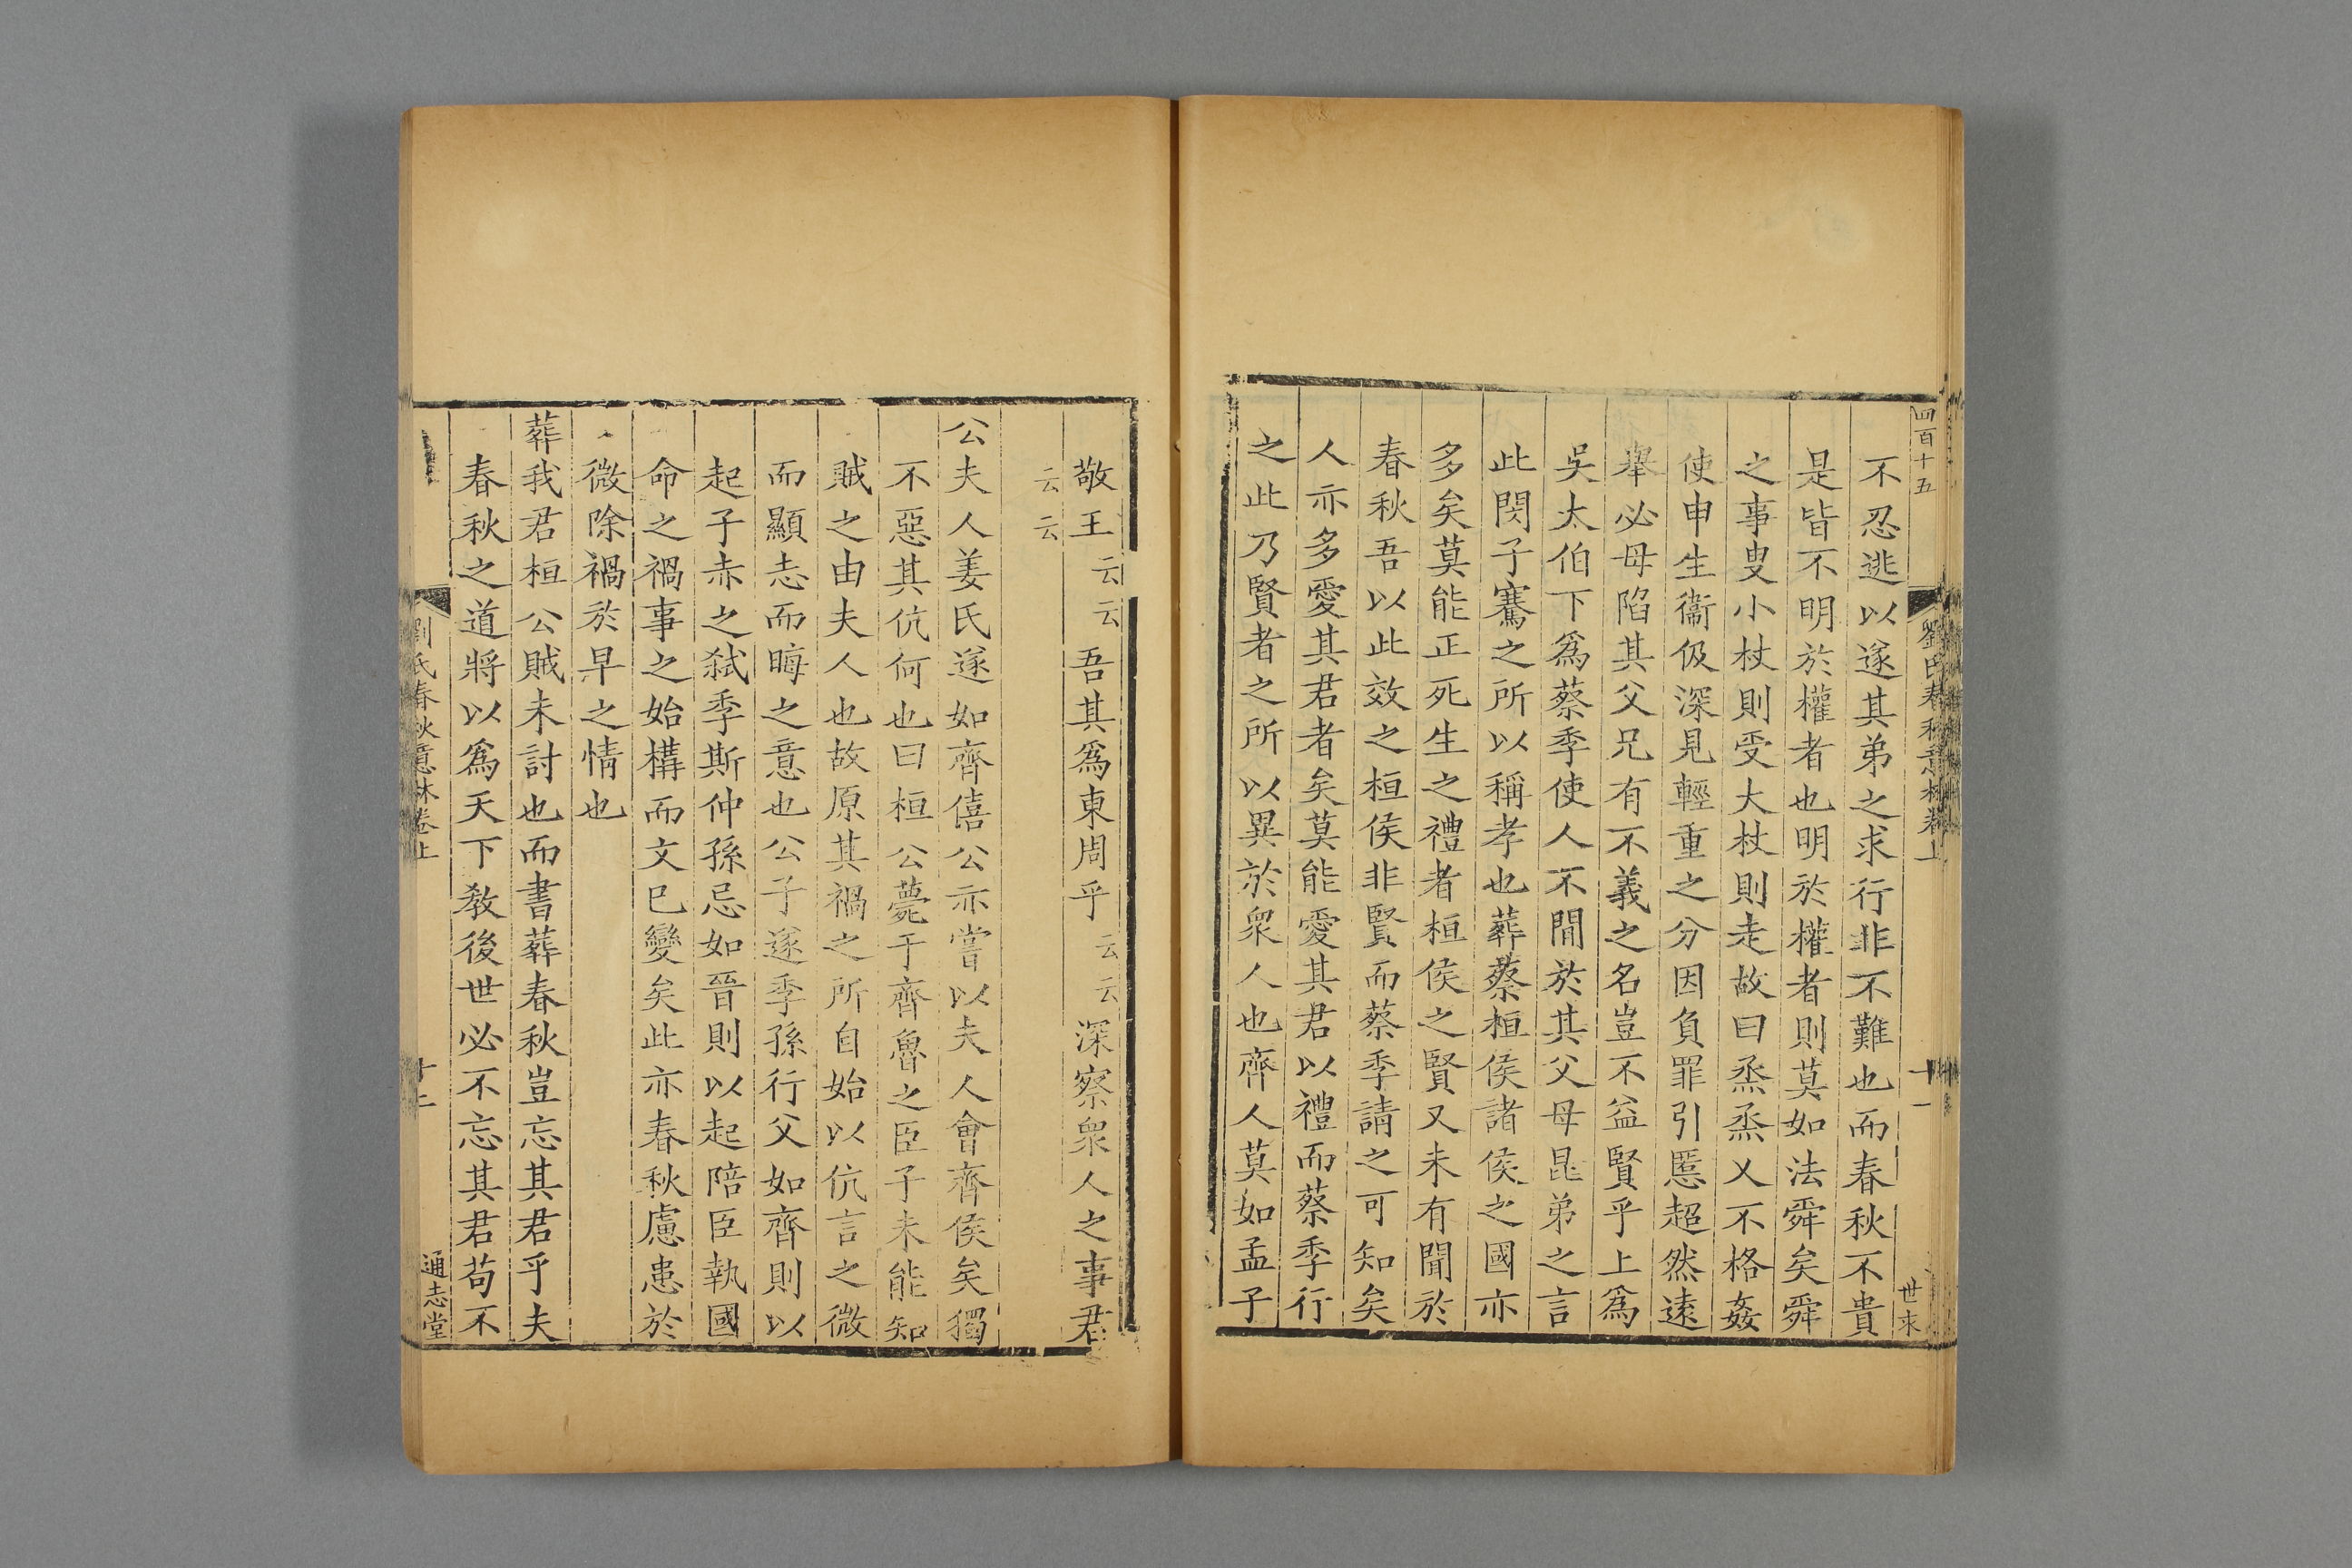 四百十五
劉氏春秋意林卷上
十一
世來
不忍逃以遂其弟之求行非不難也而春秋不貴
是皆不明於權者也明於權者則莫如法舜矣舜
之事叟小杖則受大杖則走故曰烝烝乂不格姦
使申生衞伋深見輕重之分因負罪引慝超然遠
舉必毋陷其父兄有不義之名豈不益賢乎上爲
吳太伯下爲蔡季使人不閒於其父母昆弟之言
此閔子騫之所以稱孝也葬蔡桓侯諸侯之國亦
多矣莫能正死生之禮者桓侯之賢又未有聞於
春秋吾以此效之桓侯非賢而蔡季請之可知矣
人亦多愛其君者矣莫能愛其君以禮而蔡季行
之此乃賢者之所以異於衆人也齊人莫如孟子
敬王云云吾其爲東周乎云云深察衆人之事君
云云
公夫人姜氏遂如齊僖公亦嘗以夫人會齊侯矣獨
不惡其伉何也曰桓公薨于齊魯之臣子未能知
賊之由夫人也故原其禍之所自始以伉言之微
而顯志而晦之意也公子遂季孫行父如齊則以
起子赤之弑季斯仲孫忌如晉則以起陪臣執國
命之禍事之始構而文已變矣此亦春秋慮患於
微除禍於早之情也
葬我君桓公賊未討也而書葬春秋豈忘其君乎夫
春秋之道將以爲天下敎後世必不忘其君苟不
劉氏春秋意林卷上
十二
通志堂